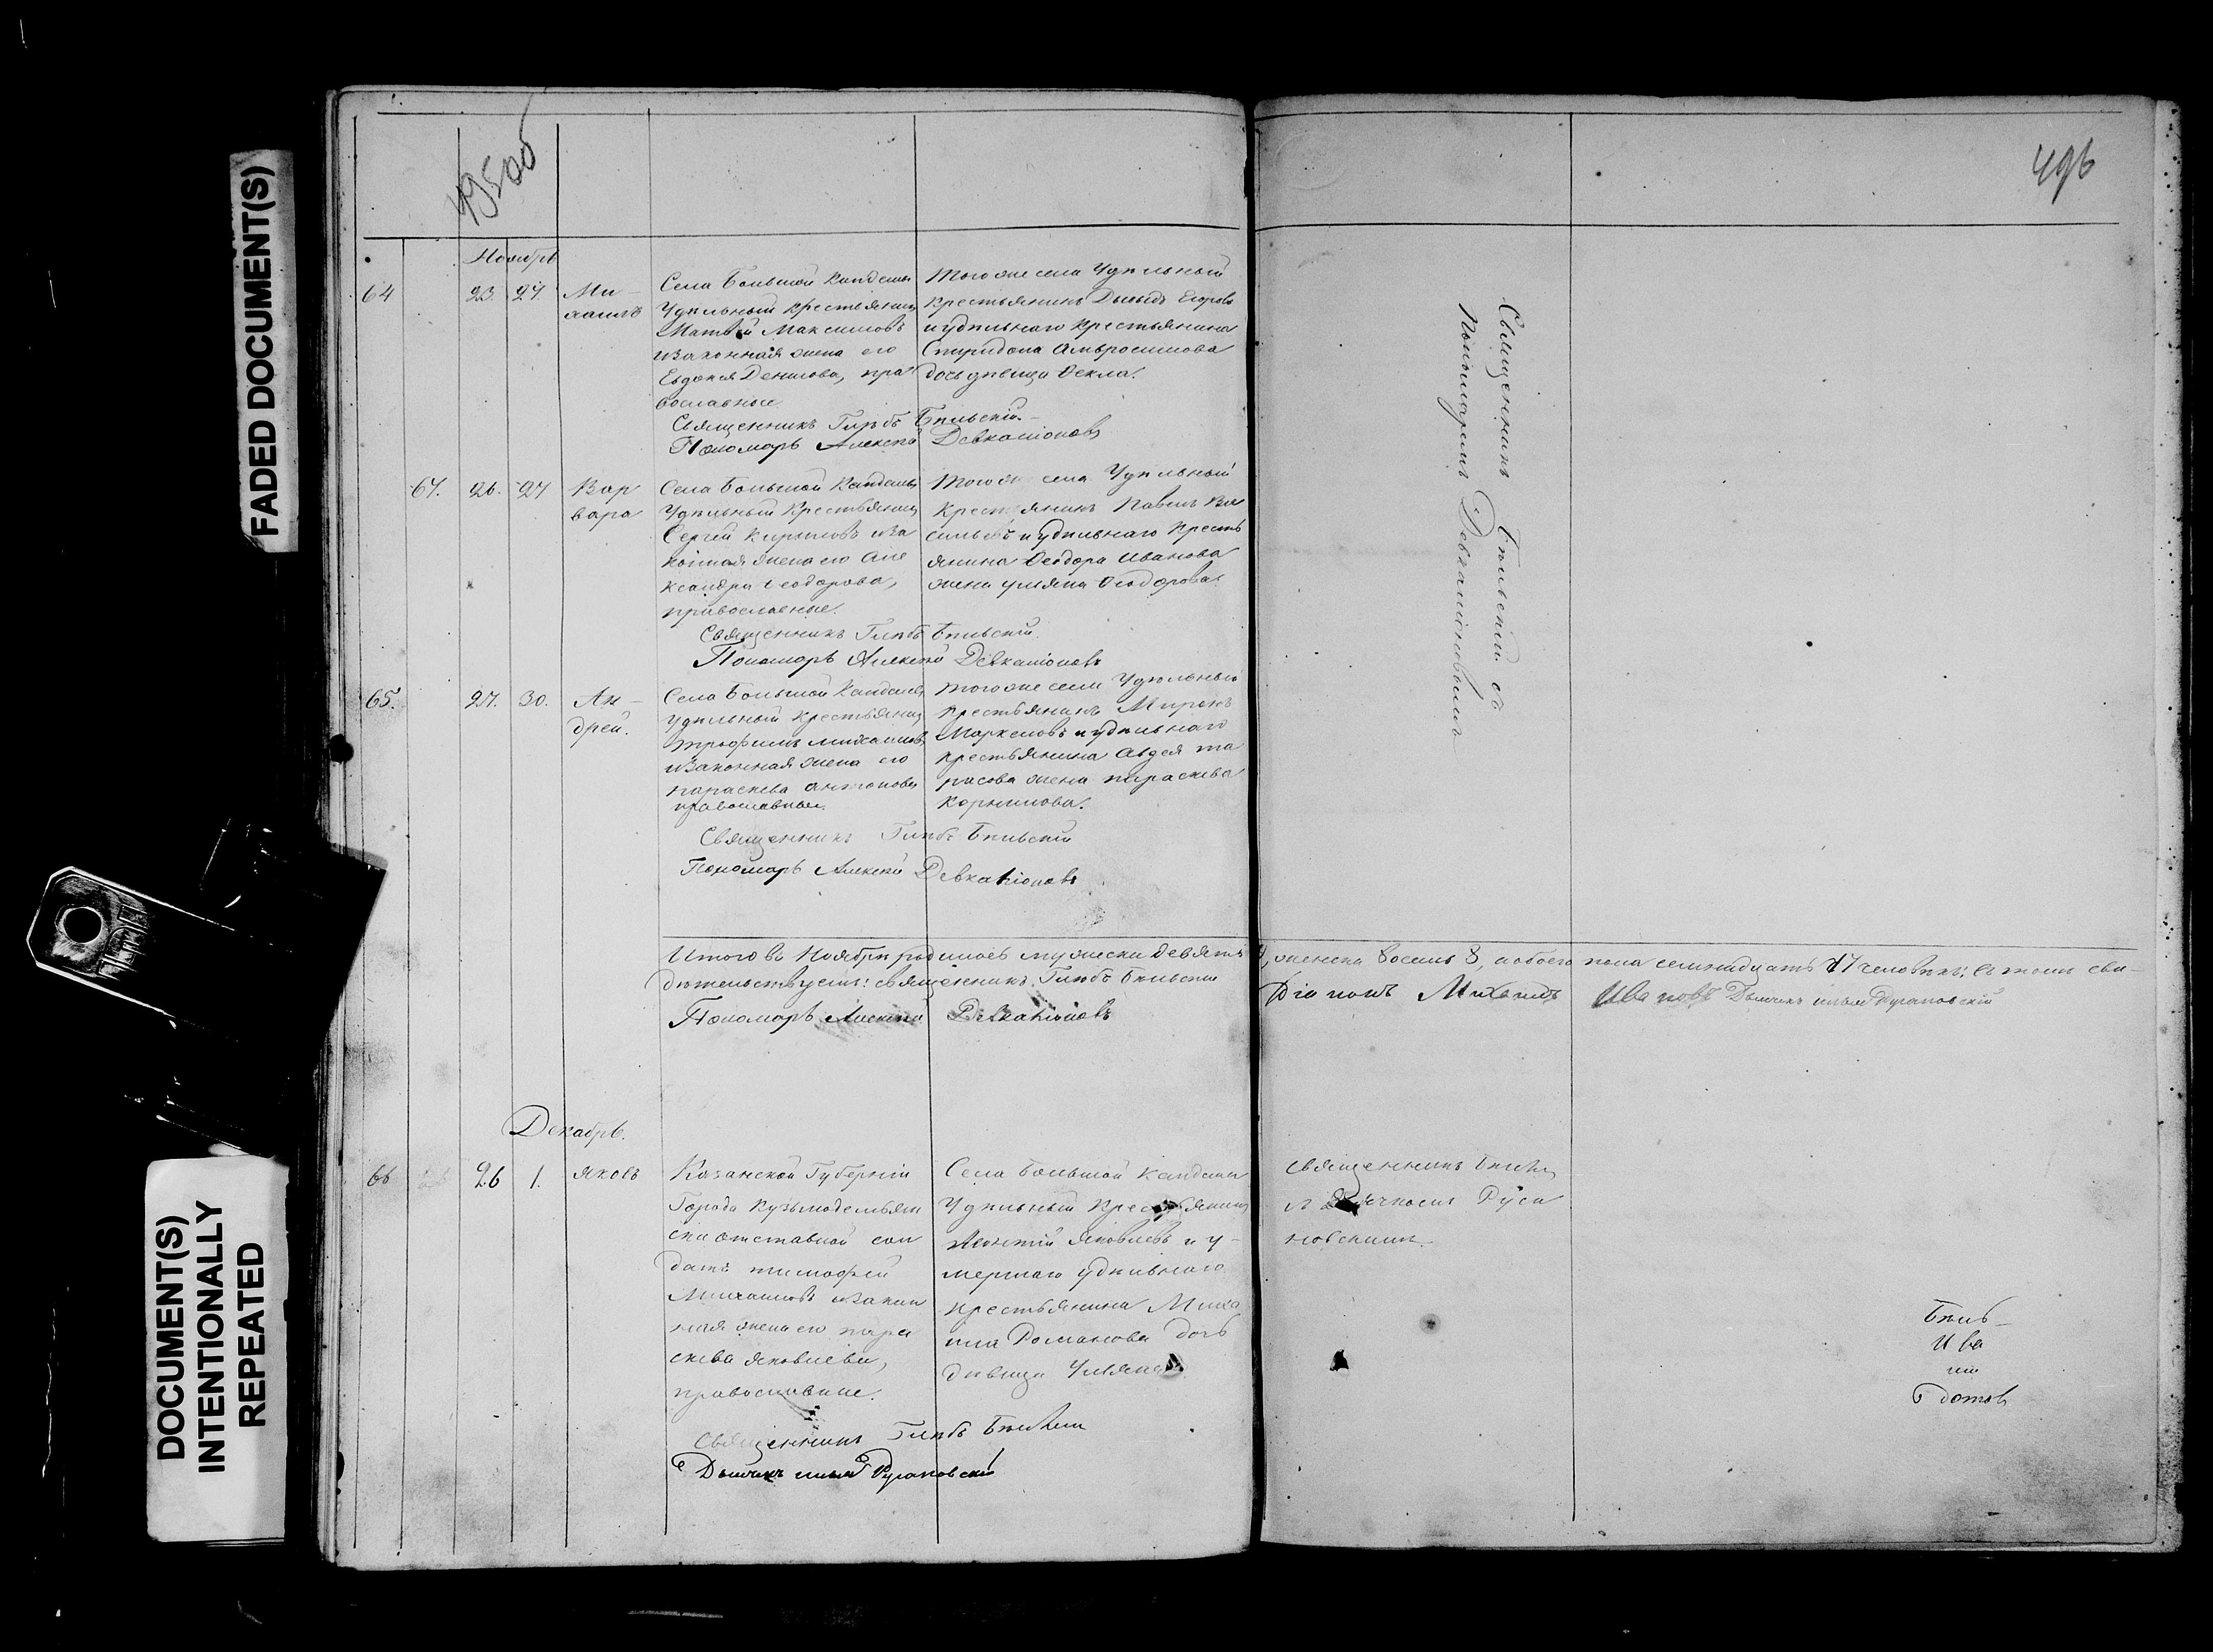 FADED DOCUMENT(S)
DOCUMENT(S)
INTENTIONALLY
REPEATED
495об
496
Ноябрь
64
23.
27.
Ми-
хаилъ
Села Большой Кандалы
Удѣльный Крестьянинъ
Матвѣй Максимовъ
и законная жена его
Евдокія Денисова, пра
вославные
Тогоже села Удѣльный
Крестьянинъ Давыдъ Егоровъ
и удѣльнаго Крестьянина
Спиридона Амвросимова
дочь дѣвица Ѳекла.
Священникъ Глѣбъ Бѣльскій.
Пономарь Алексѣй Девкаліоновъ
67.
26.
27
Вар
вара
Села Большой Кандалы
Удѣльный Крестьянинъ
Сергѣй Кириловъ и за
конная жена его Але
ксандра Ѳеодорова,
православные.
Тогоже села Удѣльный
Крестьянинъ Павелъ Ва
сильевъ и удѣльнаго Кресть
янина Ѳеодора Иванова
жена Ульяна Ѳеодорова.
Священникъ Глѣбъ Бѣльскій.
Пономарь Алексѣй Девкаліоновъ
65.
27.
30.
Ан-
дрей.
Села Большой Кандалы
Удѣльный Крестьянинъ
Трофимъ Михайловъ
и законная жена его
Параскева Антонова
православные.
Тогоже села Удѣльный
Крестьянинъ Миронъ
Маркеловъ и удѣльнаго
Крестьянина Авдея Та
расова жена Параскева
Корнилова.
Священникъ Глѣбъ Бѣльскій
Пономарь Алексѣй Девкаліоновъ
Священникъ Бѣльскій съ
Пономаремъ Девкаліоновымъ
Итого въ Ноябрѣ родилось мужеска девять 9, женска восемь 8, а обоего пола семнадцать 17 человѣкъ; въ томъ сви-
дѣтельствуемъ: священникъ Глѣбъ Бѣльскій Діаконъ Михаилъ Ивановъ Дьячекъ Илья Русановскій
Пономарь Алексѣй Девкаліоновъ
Декабрь.
66
26
1.
Яковъ
Казанской Губерніи
Города Кузьмодемьян
ска отставной сол
датъ Тимофей
Михайловъ и закон
ная жена его Пара
скева Яковлева,
православные.
Села Большой Кандалы
Удѣльный Крестьянинъ
Леонтій Яковлевъ и у-
мершаго удѣльнаго
Крестьянина Миха
ила Романова дочь
дѣвица Ульяна
Священникъ Бѣльск
Дьячкомъ Руса
новскимъ.
Священникъ Глѣбъ Бѣльскій
Дьячекъ Илья Русановскій
Бѣль-
Ива